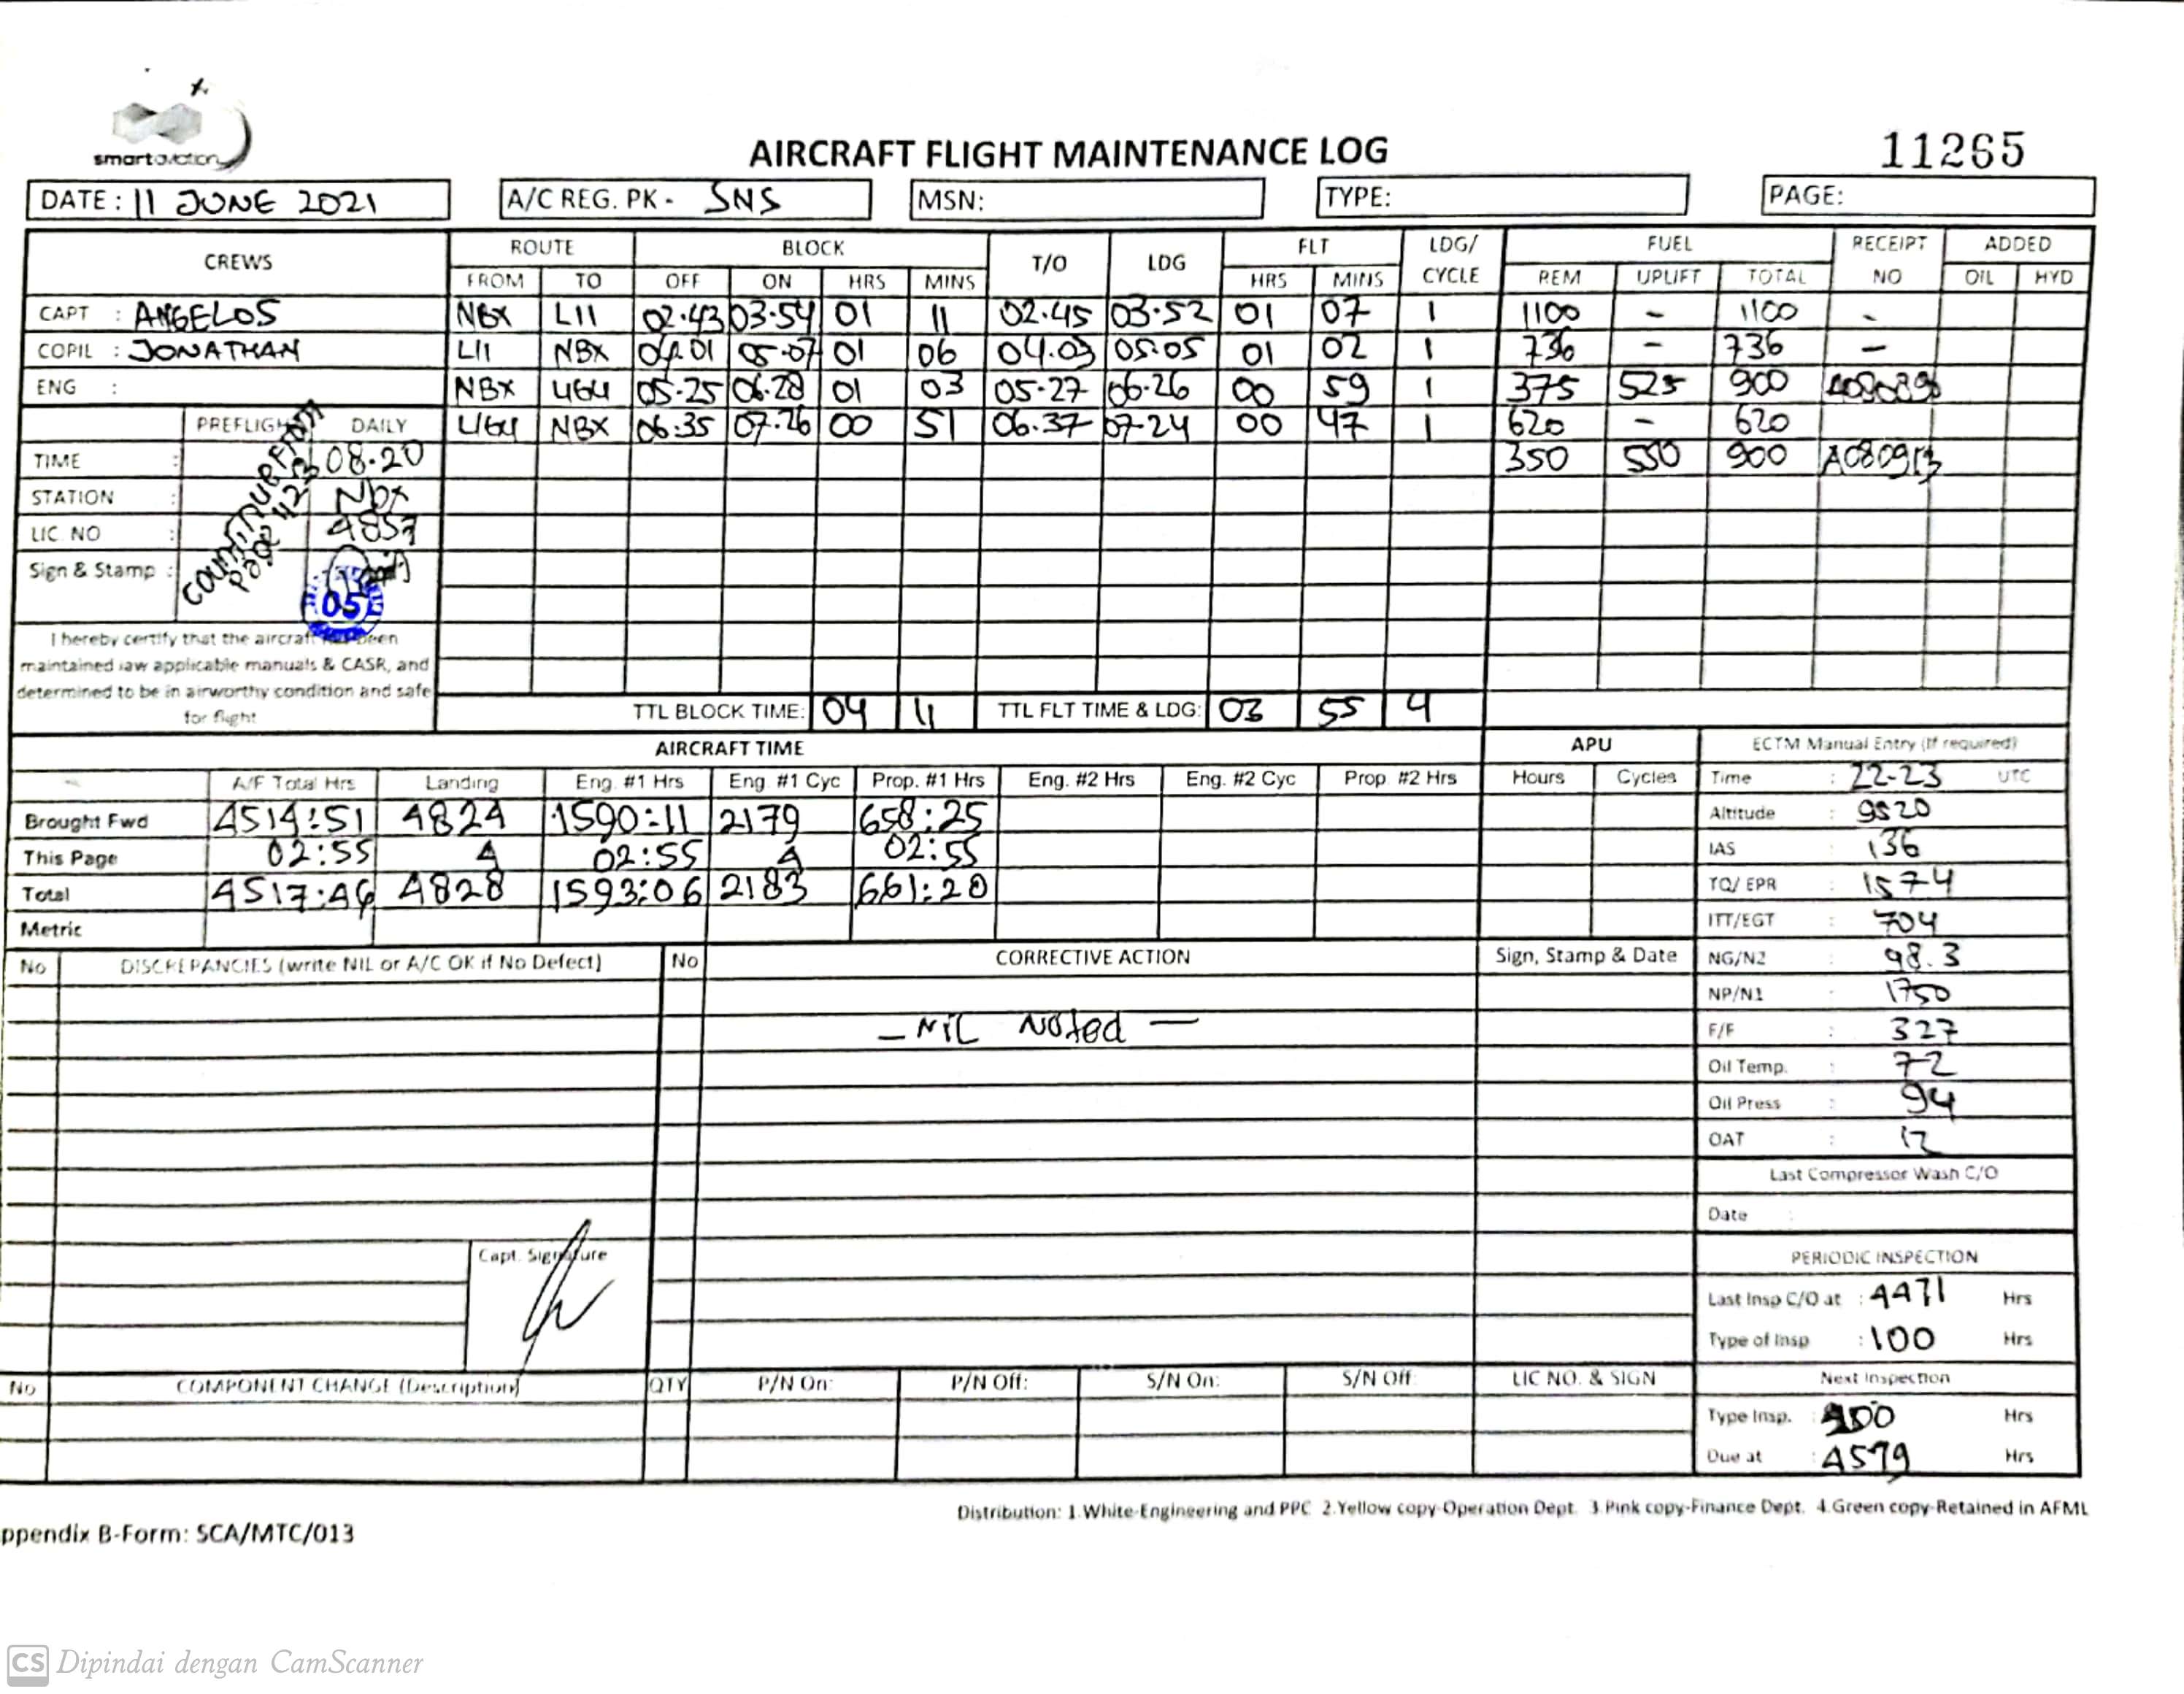 smart aviation
AIRCRAFT FLIGHT MAINTENANCE LOG
11265
DATE : 11 JUNE 2021 A/C REG. PK - SNS MSN: TYPE: PAGE:
CREWS ROUTE BLOCK T/O LDG FLT LDG/ CYCLE FUEL RECEIPT NO ADDED
FROM TO OFF ON HRS MINS HRS MINS REM UPLIFT TOTAL OIL HYD
CAPT : ANGELOS NBX LII 02.43 03.54 01 11 02.45 03.52 01 07 1 1100 - 1100 -
COPIL : JONATHAN LII NBX 04.01 05.07 01 06 04.03 05.05 01 02 1 736 - 736 -
ENG : NBX UGU 05.25 06.28 01 03 05.27 06.26 00 59 1 375 525 900
PREFLIGHT DAILY UGU NBX 06.35 07.26 00 51 06.37 07.24 00 47 1 620 - 620
TIME : 08.20 350 550 900 A080913
STATION : NBX
LIC. NO : 4857
Sign & Stamp :
COUNTINUE FROM
PAGE
05
I hereby certify that the aircraft has been
maintained iaw applicable manuals & CASR, and
determined to be in airworthy condition and safe
for flight
TTL BLOCK TIME: 04 11 TTL FLT TIME & LDG: 03 55 4
AIRCRAFT TIME APU ECTM Manual Entry (If required)
A/F Total Hrs Landing Eng. #1 Hrs Eng. #1 Cyc Prop. #1 Hrs Eng. #2 Hrs Eng. #2 Cyc Prop. #2 Hrs Hours Cycles Time : 22-23 UTC
Brought Fwd 4514:51 4824 1590:11 2179 658:25 Altitude : 9520
This Page 02:55 4 02:55 4 02:55 IAS : 136
Total 4517:46 4828 1593:06 2183 661:20 TQ/ EPR : 1574
Metric ITT/EGT : 704
No DISCREPANCIES (write NIL or A/C OK if No Defect) No CORRECTIVE ACTION Sign, Stamp & Date NG/N2 : 98.3
NP/N1 : 1750
— NIL Noted — F/F : 327
Oil Temp. : 72
Oil Press : 94
OAT : 12
Last Compressor Wash C/O
Date :
Capt. Signature
PERIODIC INSPECTION
Last Insp C/O at : 4471 Hrs
Type of Insp : 100 Hrs
No COMPONENT CHANGE (Description) QTY P/N On: P/N Off: S/N On: S/N Off: LIC NO. & SIGN Next Inspection
Type Insp. : Hrs
Due at : 4579 Hrs
Distribution: 1.White-Engineering and PPC 2.Yellow copy-Operation Dept. 3.Pink copy-Finance Dept. 4.Green copy-Retained in AFML
ppendix B-Form: SCA/MTC/013
CS Dipindai dengan CamScanner